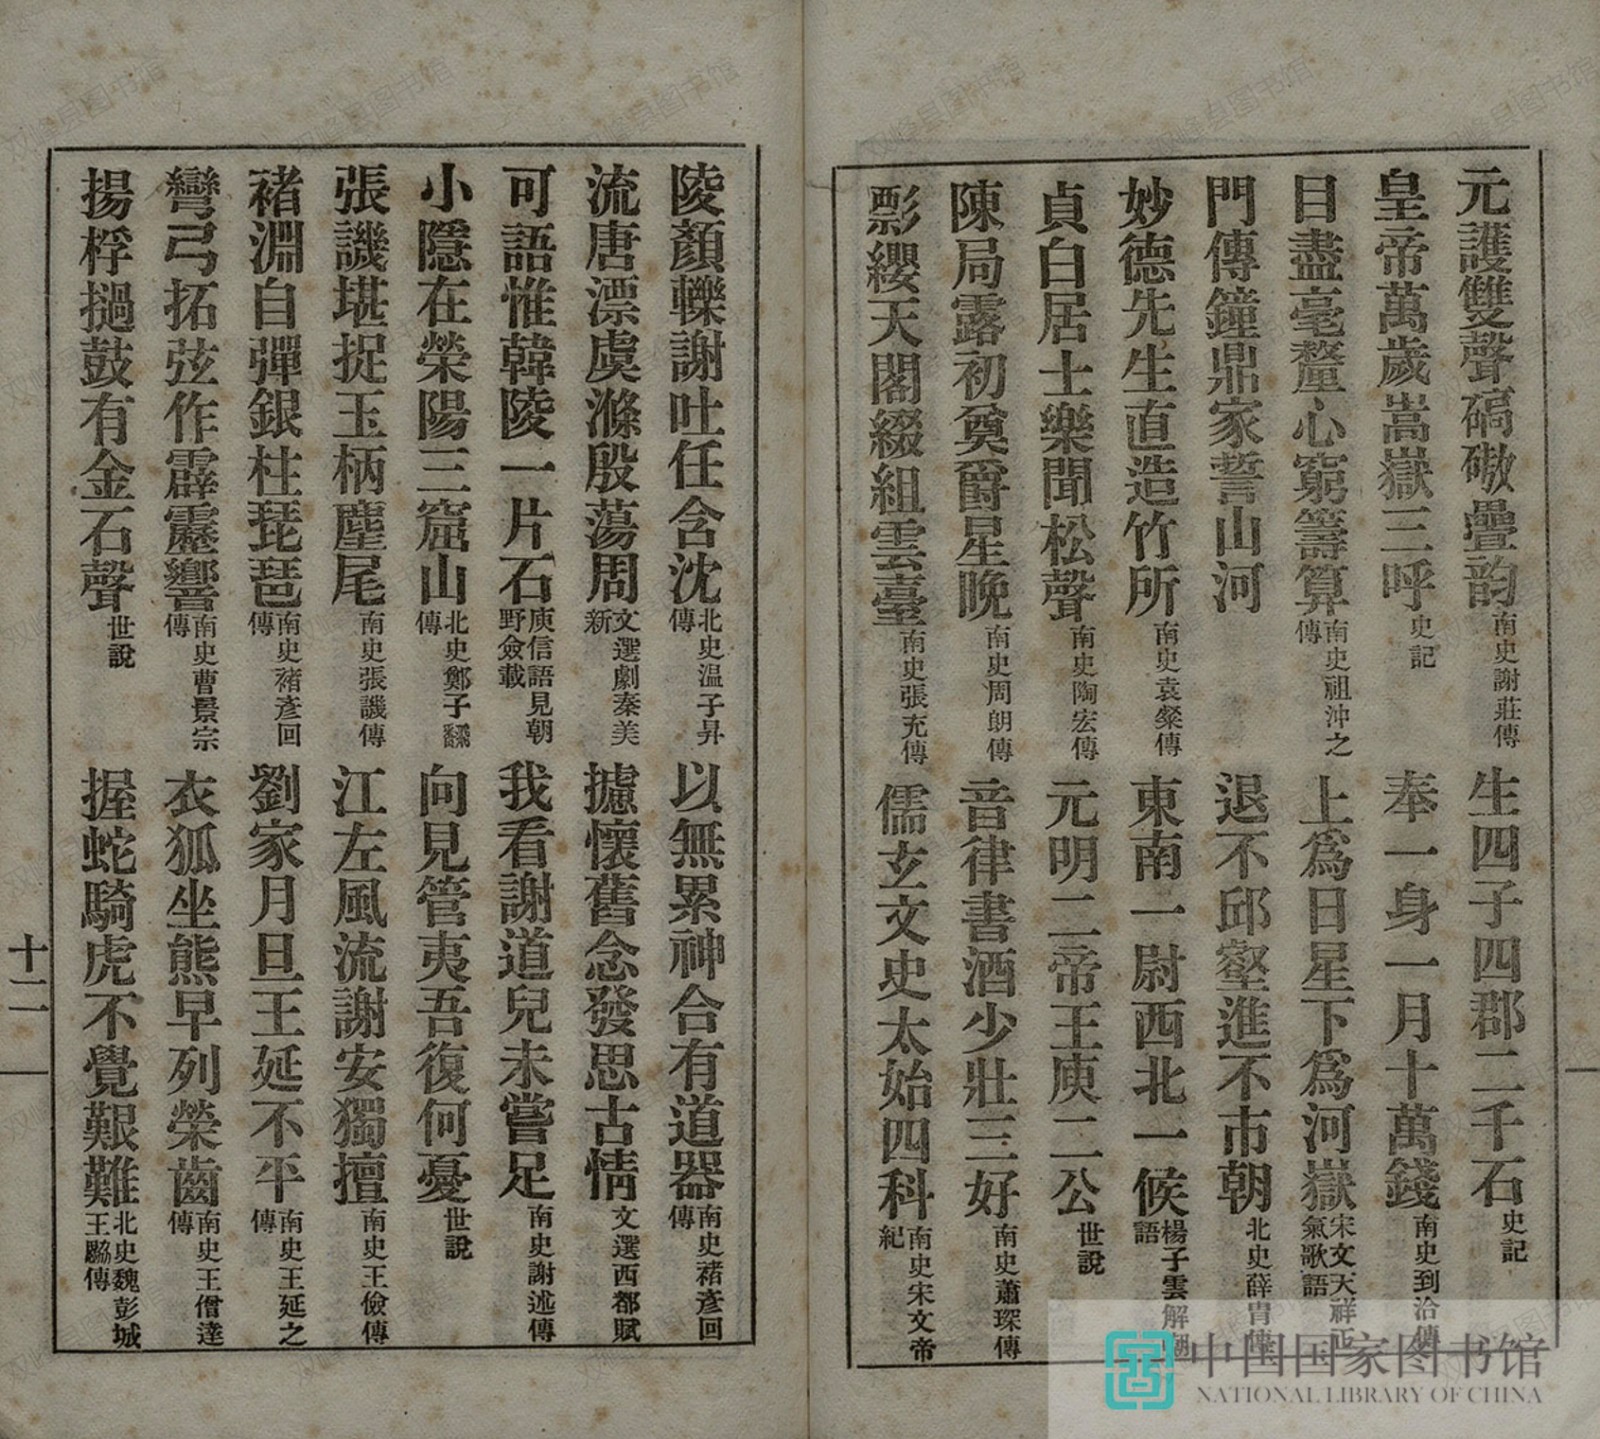 元護雙聲碻磝疊韵南史謝莊傳 生四子四郡二千石史記
皇帝萬歲嵩嶽三呼史記 奉一身一月十萬錢南史到洽傳
目盡毫釐心窮籌算南史祖沖之傳 上爲日星下爲河嶽宋文天祥正氣歌語
門傳鐘鼎家誓山河 退不邱壑進不市朝北史薛胄傳
妙德先生直造竹所南史袁粲傳 東南一尉西北一候楊子雲解嘲語
貞白居士樂聞松聲南史陶宏傳 元明二帝王庾二公世說
陳局露初奠爵星晚南史周朗傳 音律書酒少壯三好南史蕭琛傳
影纓天閣綴組雲臺南史張充傳 儒玄文史太始四科南史宋文帝紀
陵顏轢謝吐任含沈北史溫子昇傳 以無累神合有道器南史褚彥回傳
流唐漂虞滌殷蕩周文選劇秦美新 攄懷舊念發思古情文選西都賦
可語惟韓陵一片石庾信語見朝野僉載 我看謝道兒未嘗足南史謝述傳
小隱在榮陽三窟山北史鄭子翻傳 向見管夷吾復何憂世說
張譏堪捉玉柄麈尾南史張譏傳 江左風流謝安獨擅南史王儉傳
褚淵自彈銀柱琵琶南史褚彥回傳 劉家月旦王延不平南史王延之傳
彎弓拓弦作霹靂響南史曹景宗傳 衣狐坐熊早列榮齒南史王僧達傳
揚桴撾鼓有金石聲世說 握蛇騎虎不覺艱難北史魏彭城王勰傳
十二
中国国家图书馆
NATIONAL LIBRARY OF CHINA